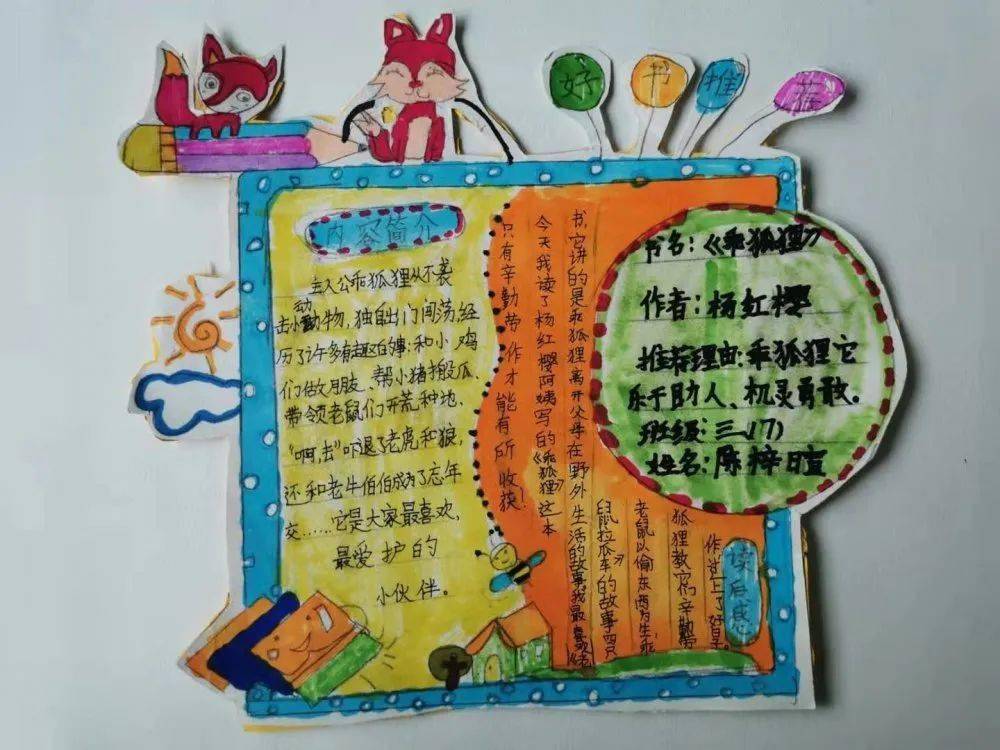 好书推荐
内容简介
主人公乖狐狸从不袭
击小动物,独自出门闯荡,经
历了许多有趣的事:和小鸡
们做朋友、帮小猪搬瓜、
带领老鼠们开荒种地、
吓退了老虎和狼,
还和老牛伯伯成为了忘年
交……它是大家最喜欢、
最爱护的
小伙伴。
书名:《乖狐狸》
作者:杨红樱
推荐理由:乖狐狸它
乐于助人、机灵勇敢。
班级:三(17)
姓名:陈梓暄
读后感
今天我读了杨红樱阿姨写的《乖狐狸》这本
书,它讲的是乖狐狸离开父母在野外生活的故事,我最喜欢《老
鼠拉瓜车》的故事,四只
老鼠以偷东西为生,乖
狐狸教它们辛勤劳
作,过上了好日子。
只有辛勤劳作才能有所收获!